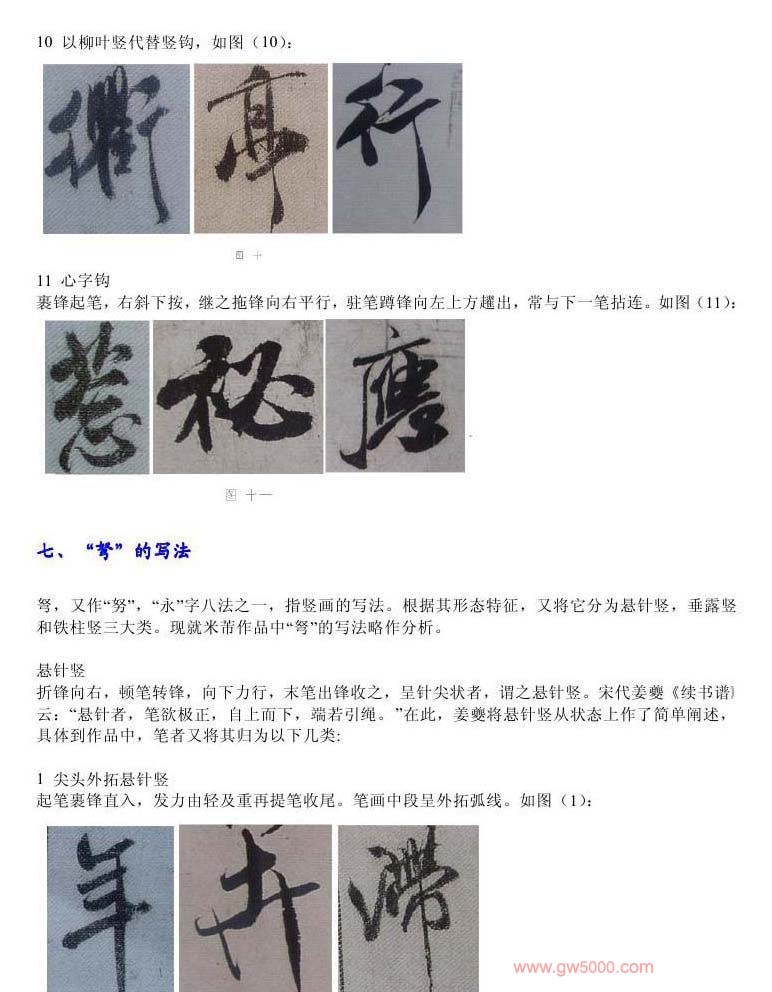 10 以柳叶竖代替竖钩，如图（10）：
衢 亭 行
图 十
11 心字钩
裹锋起笔，右斜下按，继之拖锋向右平行，驻笔蹲锋向左上方趯出，常与下一笔拈连。如图（11）：
惹 秘 應
图 十一
七、“弩”的写法
弩，又作“努”，“永”字八法之一，指竖画的写法。根据其形态特征，又将它分为悬针竖，垂露竖
和铁柱竖三大类。现就米芾作品中“弩”的写法略作分析。
悬针竖
折锋向右，顿笔转锋，向下力行，末笔出锋收之，呈针尖状者，谓之悬针竖。宋代姜夔《续书谱》
云：“悬针者，笔欲极正，自上而下，端若引绳。”在此，姜夔将悬针竖从状态上作了简单阐述，
具体到作品中，笔者又将其归为以下几类：
1 尖头外拓悬针竖
起笔裹锋直入，发力由轻及重再提笔收尾。笔画中段呈外拓弧线。如图（1）：
年 卉 滯
www.gw5000.com